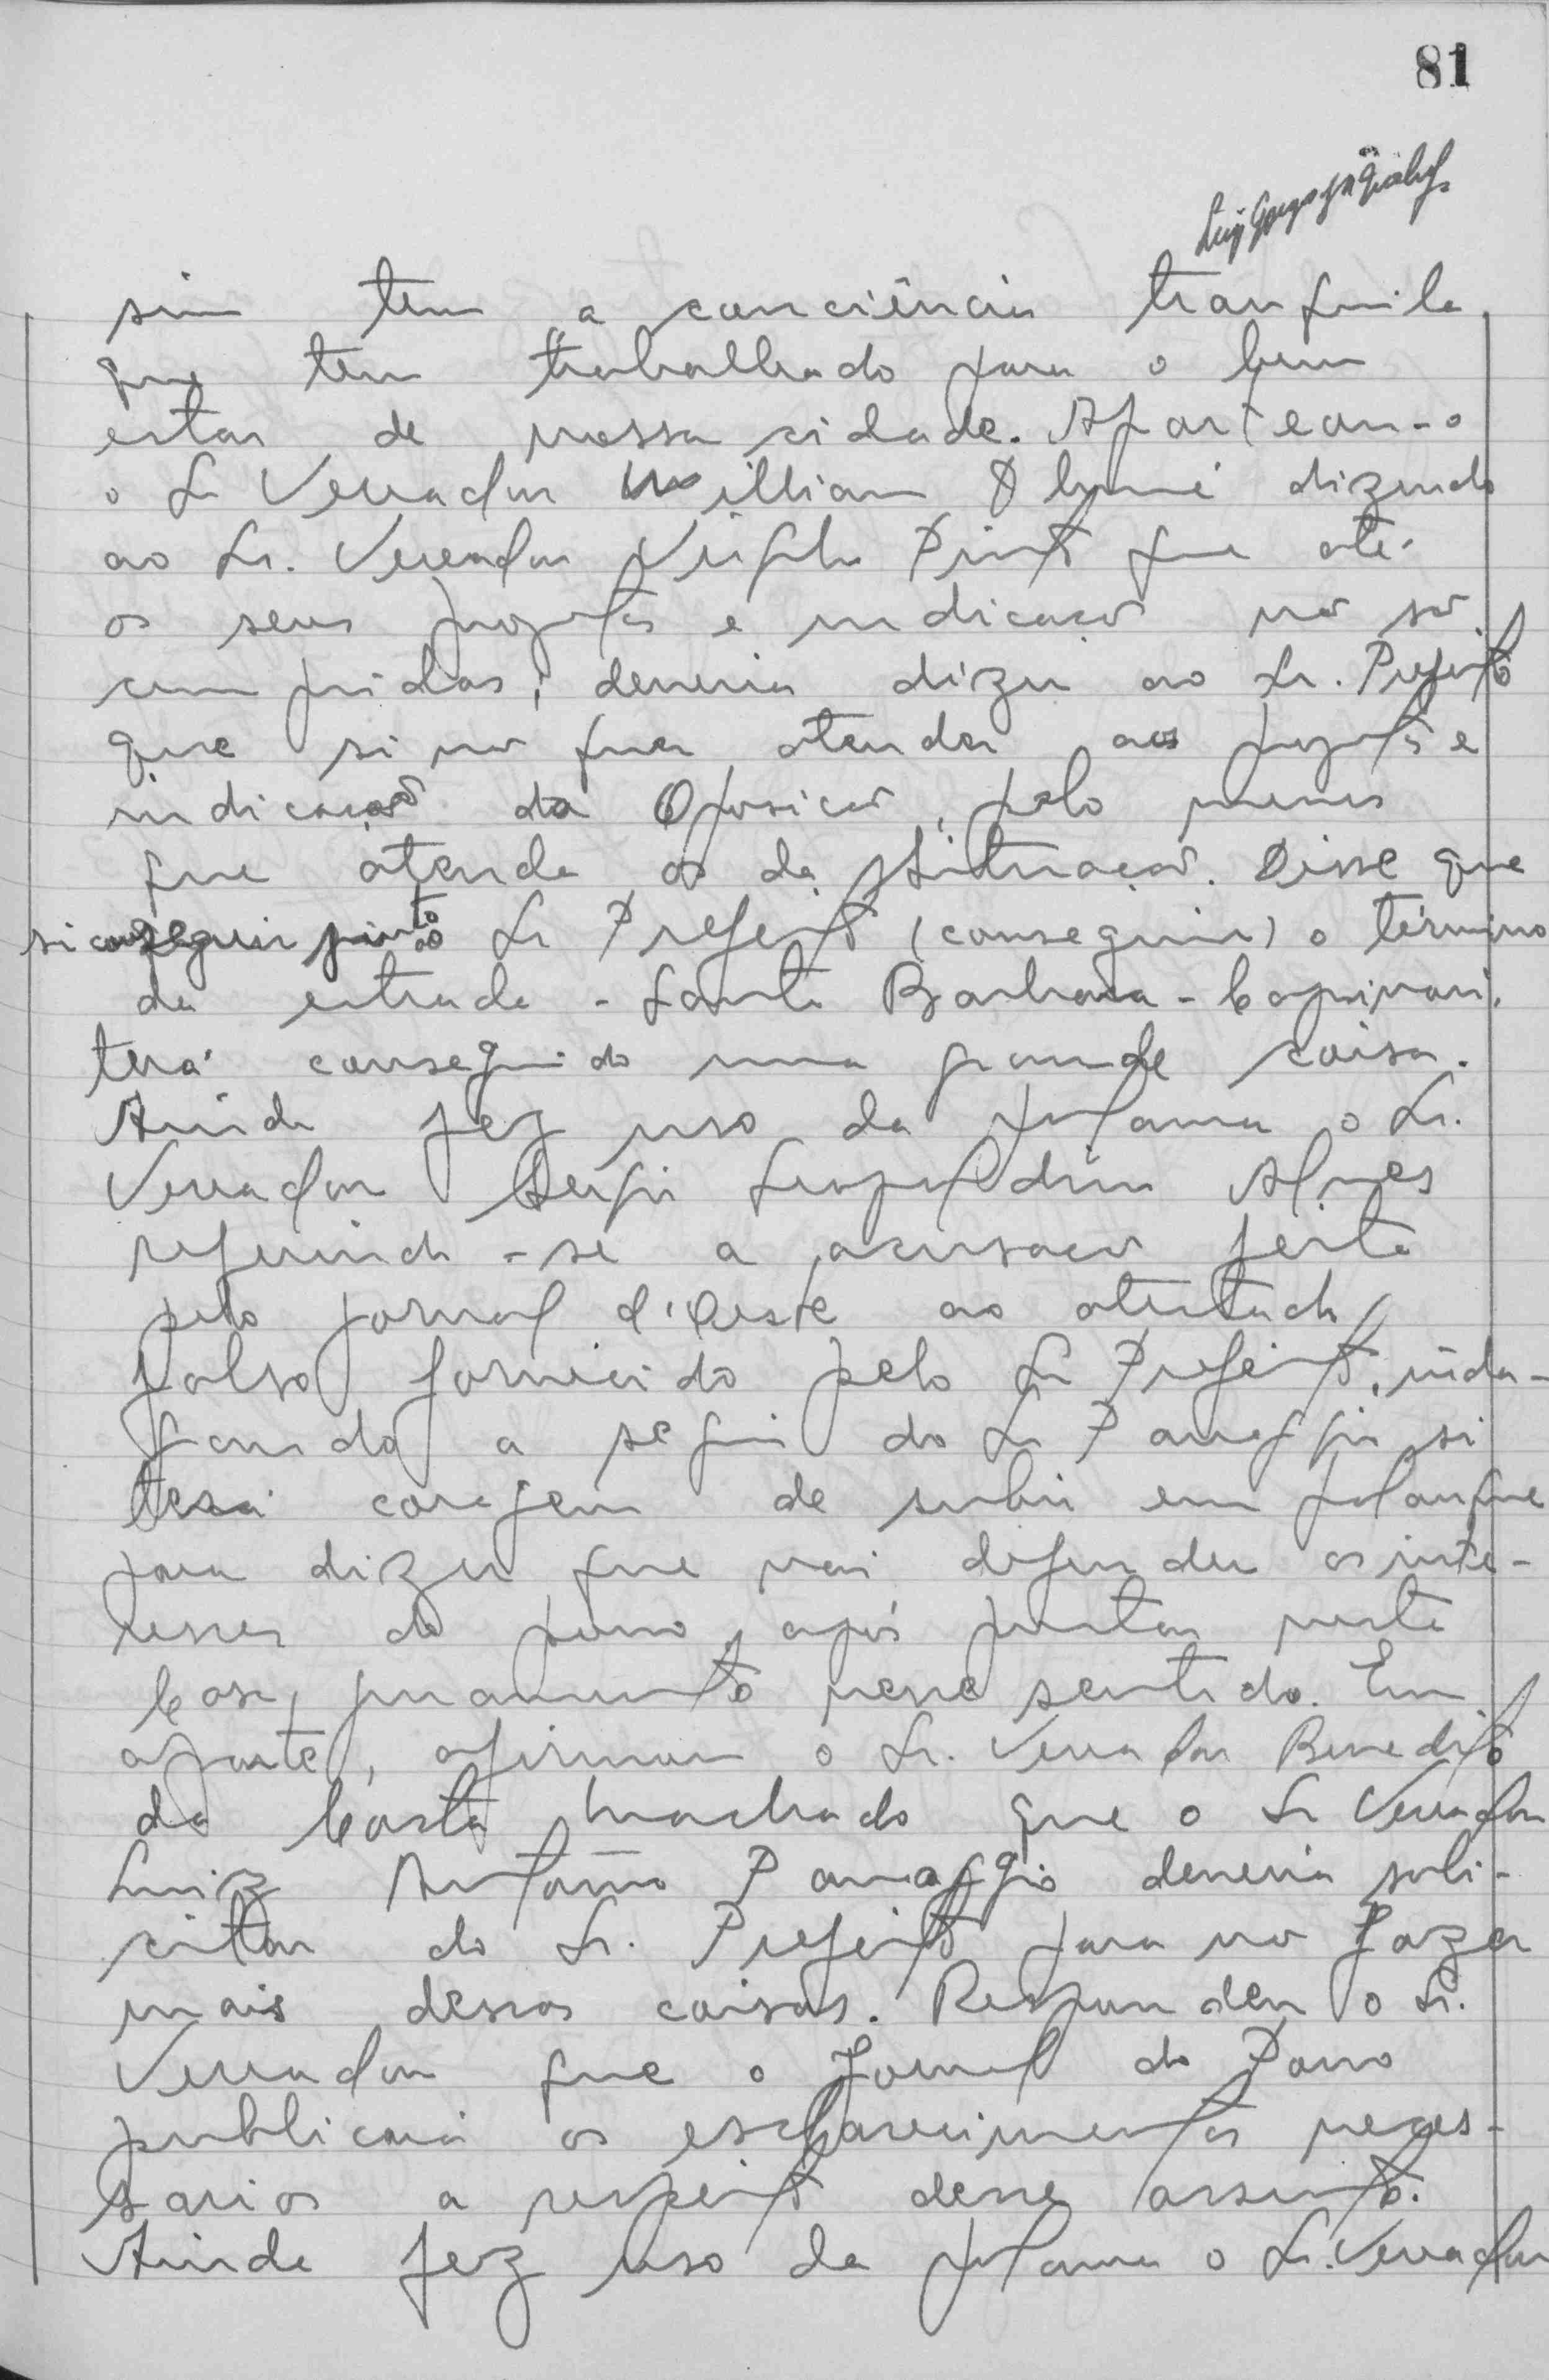 81
sim tem a conciência tranquila
que tem trabalhado para o bem
estar de nossa cidade. Aparteou-o
o Sr Vereador William dizendo
ao Sr. Vereador Pinto que até
os seus projetos e indicaçao não são
cumpridas, deveria dizer ao Sr. Prefeito
que si não quer atender aos projetos e
indicação da Oposição, pelo menos
que atenda os da Situação. Disse que
si conseguir junto ao Sr Prefeito (conseguir) o término
da estrada - Santa Barbara - Capivari,
terá conseguido uma grande coisa.
Ainda fez uso da palavra o Sr.
Vereador Sergio Leopoldino Alves
referindo-se a acusação feita
pelo jornal d'Oeste ao atestado
falso fornecido pelo Sr Prefeito, inda-
gando a seguir do Sr Panaggio si
terá coragem de subir em palanque
para dizer que vai defender os inte-
resses do povo, após prestar nesta
Casa, juramento nesse sentido. Em
aparte, afirmou o Sr. Vereador Benedito
da Costa Machado que o Sr Vereador
Luiz Antônio Panaggio deveria soli-
citar do Sr. Prefeito para não fazer
mais dessas coisas. Respondeu o Sr.
Vereador que o Jornal do Povo
publicará os esclarecimentos neces-
sarios a respeito desse assunto.
Ainda fez uso da palavra o Sr. Vereador